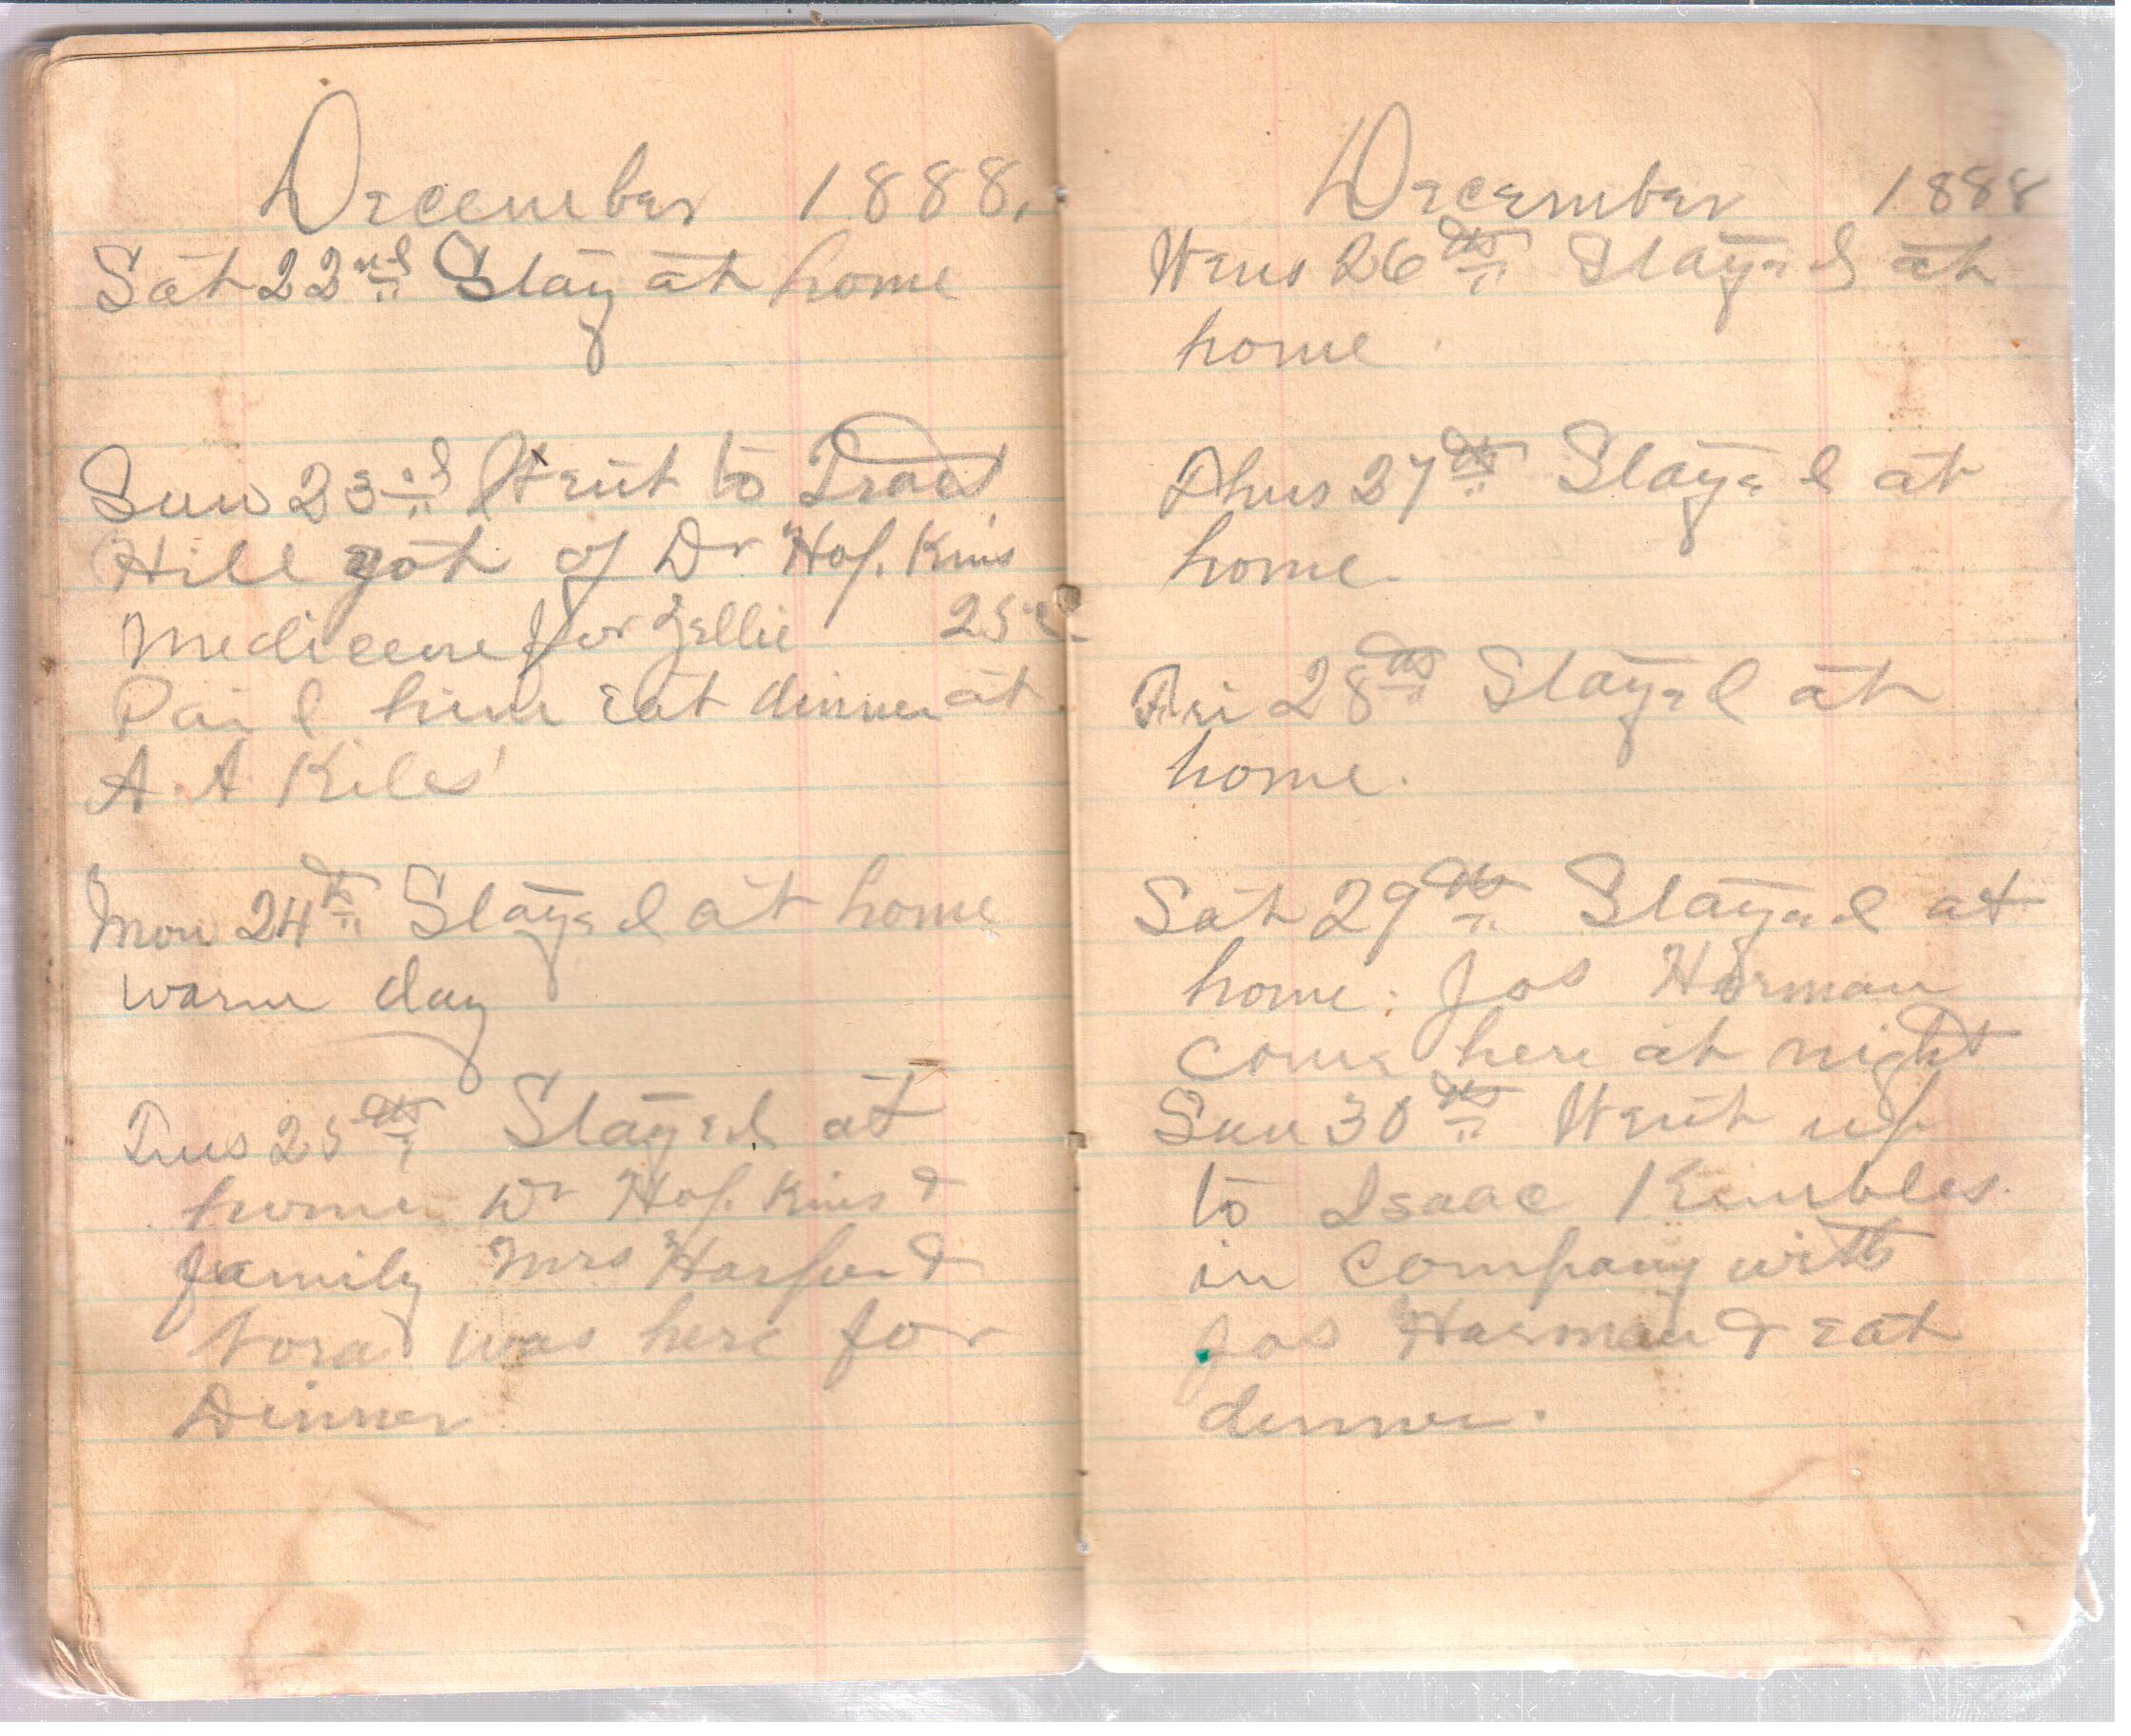 December 1888.
Sat 22nd Stay at home
Sun 23rd Went to Tract
Hill got of Dr Hopkins
Medicene for Zellie 25c
Paid him Eat dinner at
A. A Kiles'
Mon 24th Stayed at home
warm day
Tues 25th Stayed at
home Dr Hopkins &
family Mrs &
was here for
Dinner
December 1888
Wens 26th Stayed at
home.
Thus 27th Stayed at
home.
Fri 28th Stayed at
home.
Sat 29th Stayed at
home. Jos Harman
come here at night
Sun 30th Went up
to Isaac Kimbles
in company with
Jos Harman & eat
dinner.